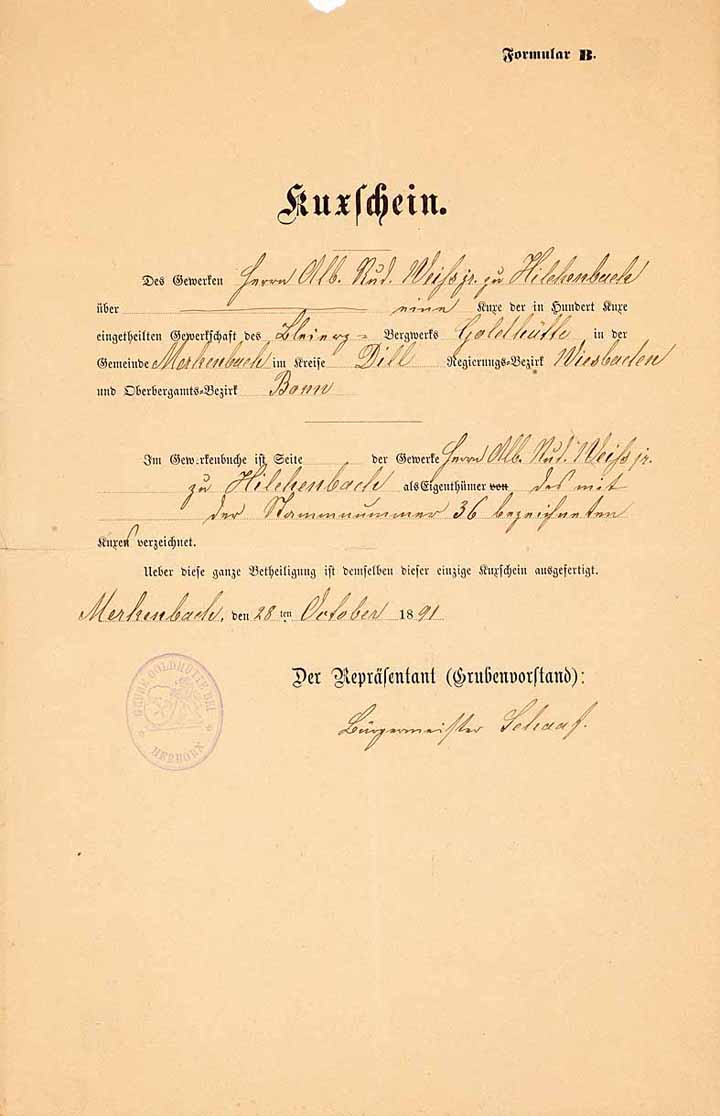 Formular B.
Kuxschein.
Des Gewerken Herrn Alb. Rud. Weiss jr. zu Hilchenbach
über eine Kuxe der in Hundert Kuxe
eingetheilten Gewerkschaft des Bleierz- Bergwerks Goldhütte in der
Gemeinde Merkenbach im Kreise Dill Regierungs-Bezirk Wiesbaden
und Oberbergamts-Bezirk Bonn
Im Gewerkenbuche ist Seite der Gewerke Herrn Alb. Rud. Weiss jr.
zu Hilchenbach als Eigenthümer von des mit
der Stammnummer 36 bezeichneten
Kuxes verzeichnet.
Ueber diese ganze Betheiligung ist demselben dieser einzige Kuxschein ausgefertigt.
Merkenbach, den 28ten October 1891
Der Repräsentant (Grubenvorstand):
Bürgermeister Schaaf.
GRUBE GOLDHÜTTE BEI
HERBORN